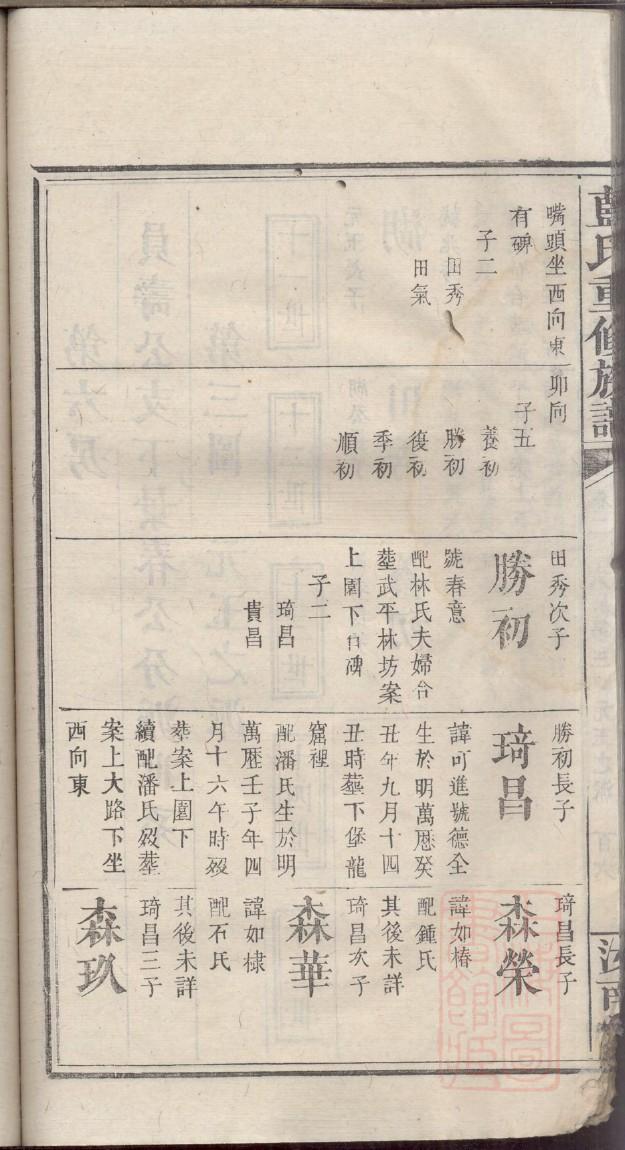 藍氏重修族譜
嘴頭坐西向東
有碑
子二
田秀
田氣
卯向
子五
養初
勝初
復初
季初
順初
田秀次子
勝初
號春意
配林氏夫婦合
塟武平林坊案
上園下有碑
子二
琦昌
貴昌
勝初長子
琦昌
諱可進號德全
生於明萬厯癸
丑年九月十四
丑時塟下堡龍
窟裡
配潘氏生於明
萬厯壬子年四
月十六午時歿
塟案上園下
續配潘氏歿塟
案上大路下坐
西向東
琦昌長子
森榮
諱如椿
配鍾氏
其後未詳
琦昌次子
森華
諱如棣
配石氏
其後未詳
琦昌三子
森玖